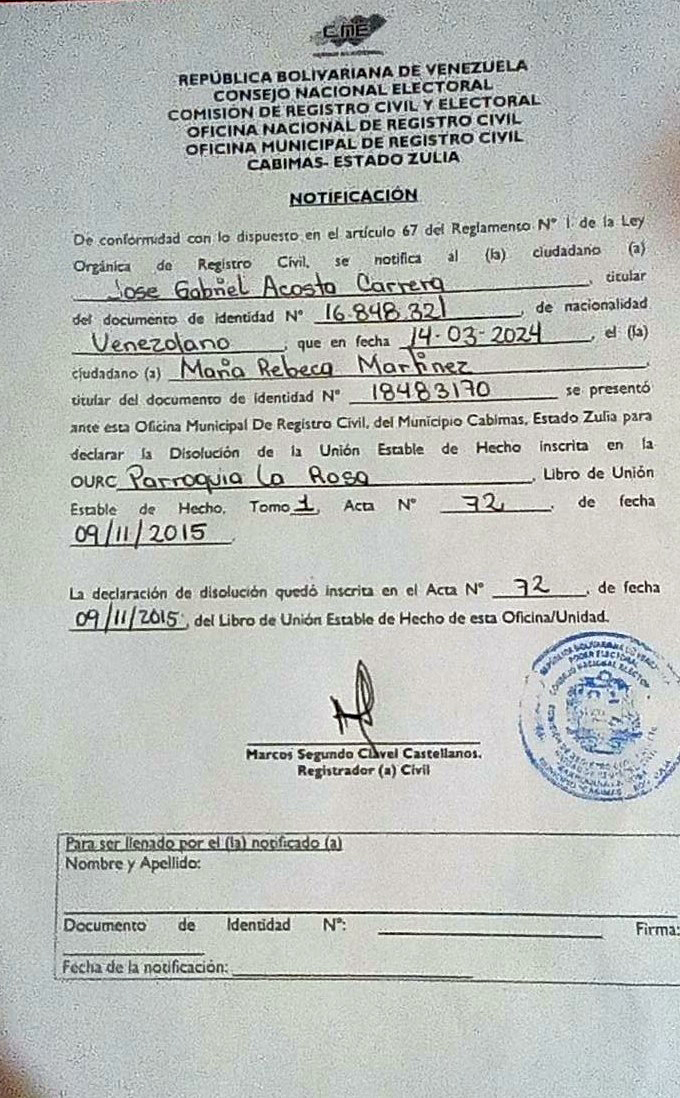 CNE
REPÚBLICA BOLIVARIANA DE VENEZUELA
CONSEJO NACIONAL ELECTORAL
COMISIÓN DE REGISTRO CIVIL Y ELECTORAL
OFICINA NACIONAL DE REGISTRO CIVIL
OFICINA MUNICIPAL DE REGISTRO CIVIL
CABIMAS- ESTADO ZULIA
NOTIFICACIÓN
De conformidad con lo dispuesto en el artículo 67 del Reglamento N° 1. de la Ley
Orgánica de Registro Civil, se notifica al (la) ciudadano (a)
Jose Gabriel Acosta Carrera, titular
del documento de identidad N° 16.848.321, de nacionalidad
Venezolano, que en fecha 14-03-2024, el (la)
ciudadano (a) Maria Rebeca Martinez,
titular del documento de identidad N° 18483170 se presentó
ante esta Oficina Municipal De Registro Civil, del Municipio Cabimas, Estado Zulia para
declarar la Disolución de la Unión Estable de Hecho inscrita en la
OURC Parroquia La Rosa, Libro de Unión
Estable de Hecho, Tomo 1, Acta N° 72, de fecha
09/11/2015.
La declaración de disolución quedó inscrita en el Acta N° 72, de fecha
09/11/2015, del Libro de Unión Estable de Hecho de esta Oficina/Unidad.
Marcos Segundo Clavel Castellanos.
Registrador (a) Civil
Para ser llenado por el (la) notificado (a)
Nombre y Apellido:
Documento de Identidad N°: Firma:
Fecha de la notificación: